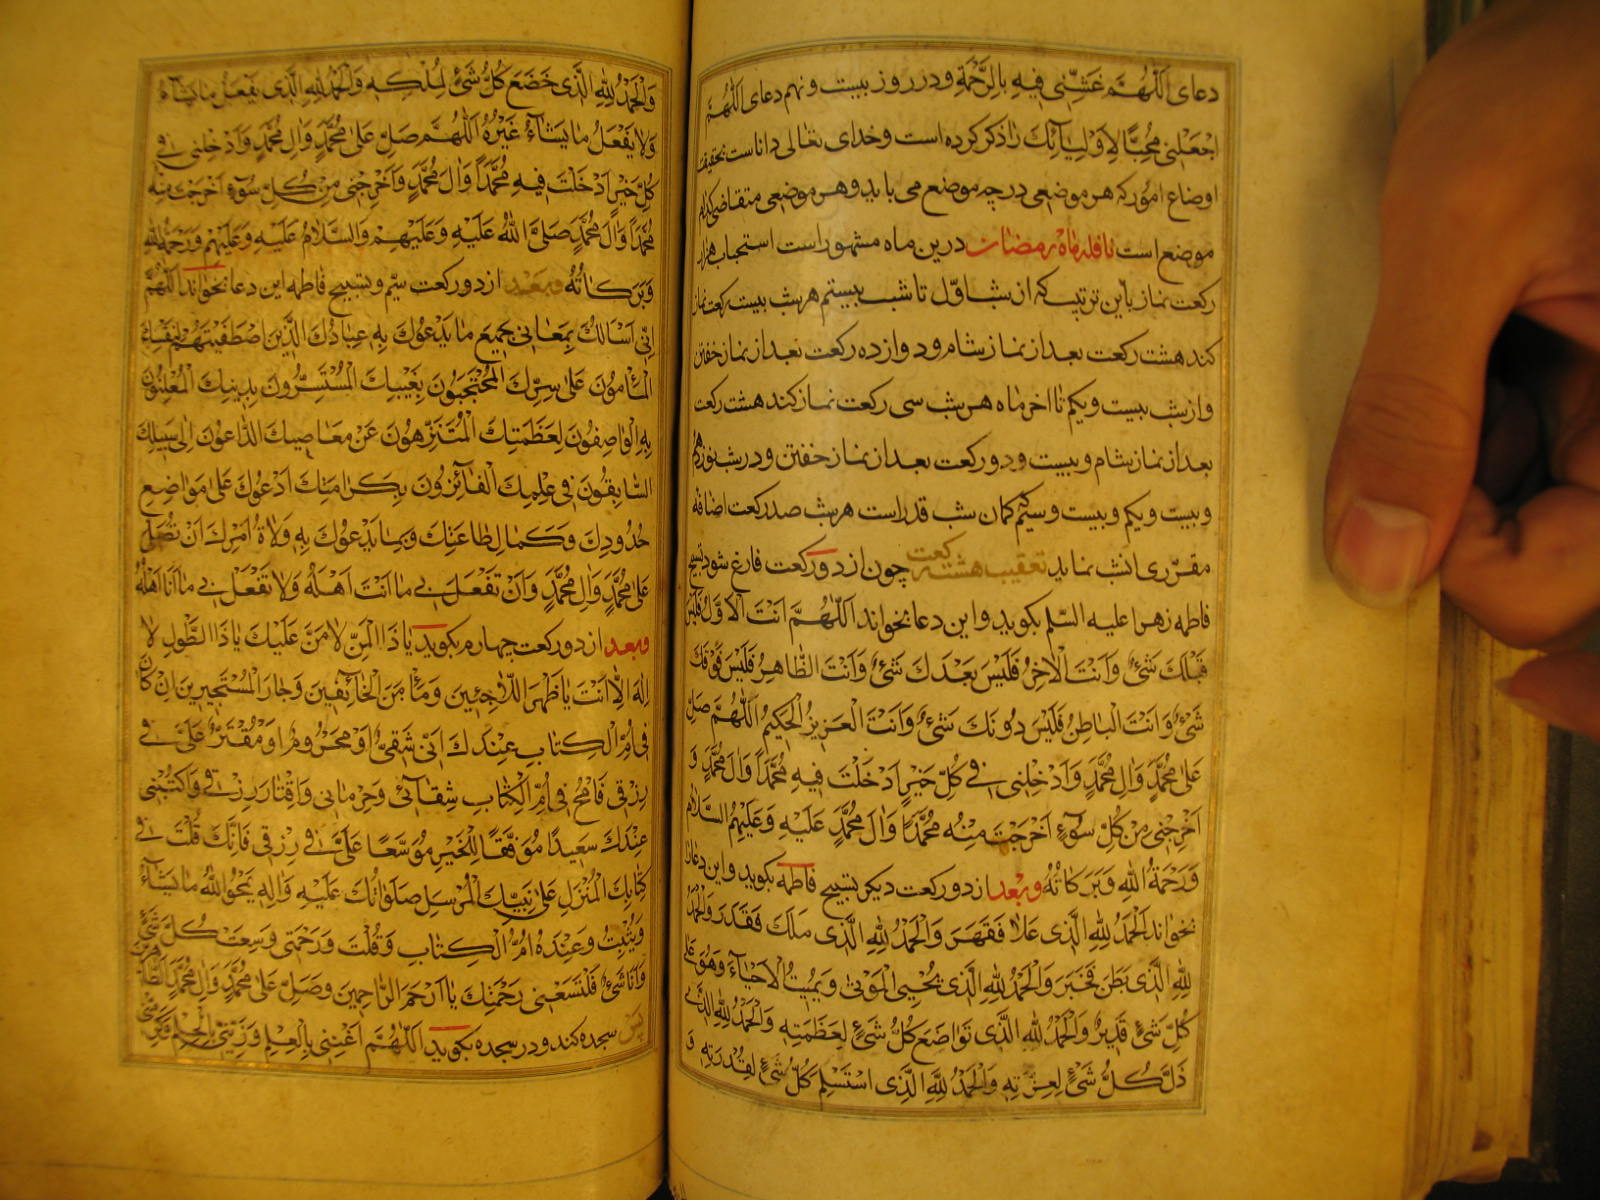 دعای اَللّٰهُمَّ غَشِّنِی فِیهِ بِالرَّحْمَةِ و در روز بیست و نهم دعای اَللّٰهُمَّ
اجْعَلْنِی مُحِبًّا لِاَوْلِیٰآئِكَ را ذکر کرده است و خدای تعالی داناست بحقیقت
اوضاع امور که هر موضعی در چه موضع می باید و هر موضعی متقاضی کدام
موضع است نافله ماه رمضان درین ماه مشهور است استحباب هزار
رکعت نماز باین ترتیب که از شب اوّل تا شب بیستم هر شب بیست رکعت نماز
کند هشت رکعت بعد از نماز شام و دوازده رکعت بعد از نماز خفتن
و از شب بیست و یکم تا اخر ماه هر شب سی رکعت نماز کند هشت رکعت
بعد از نماز شام و بیست و دو رکعت بعد از نماز خفتن و در شب نوزدهم
و بیست و یکم و بیست و سیّم که مان شب قدر است هر شب صد رکعت اضافه
مقرّری انشب نماید تعقیب هشت رکعت چون از دو رکعت فارغ شود تسبیح
فاطمه زهرا علیه السّلم بکوید و این دعا بخواند اَللّٰهُمَّ اَنْتَ الْاَوَّلُ فَلَیْسَ
قَبْلَكَ شَیْءٌ وَاَنْتَ الْاٰخِرُ فَلَیْسَ بَعْدَكَ شَیْءٌ وَاَنْتَ الظّٰاهِرُ فَلَیْسَ فَوْقَكَ
شَیْءٌ وَاَنْتَ الْبٰاطِنُ فَلَیْسَ دُونَكَ شَیْءٌ وَاَنْتَ الْعَزِیزُ الْحَكِیمُ اَللّٰهُمَّ صَلِّ
عَلیٰ مُحَمَّدٍ وَاٰلِ مُحَمَّدٍ وَاَدْخِلْنِی فِی كُلِّ خَیْرٍ اَدْخَلْتَ فِیهِ مُحَمَّدًا وَاٰلَ مُحَمَّدٍ وَ
اَخْرِجْنِی مِنْ كُلِّ سُوٓءٍ اَخْرَجْتَ مِنْهُ مُحَمَّدًا وَاٰلَ مُحَمَّدٍ عَلَیْهِ وَعَلَیْهِمُ السَّلٰامُ
وَرَحْمَةُ اللهِ وَبَرَكٰاتُهُ و بعد از دو رکعت دیکر تسبیح فاطمه بکوید و این دعا را
بخواند اَلْحَمْدُ لِلّٰهِ الَّذِی عَلٰا فَقَهَرَ وَالْحَمْدُ لِلّٰهِ الَّذِی مَلَكَ فَقَدَرَ وَالْحَمْدُ
لِلّٰهِ الَّذِی بَطَنَ فَخَبَرَ وَالْحَمْدُ لِلّٰهِ الَّذِی یُحْیِی الْمَوْتیٰ وَیُمِیتُ الْاَحْیٰآءَ وَهُوَ عَلیٰ
كُلِّ شَیْءٍ قَدِیرٌ وَالْحَمْدُ لِلّٰهِ الَّذِی تَوٰاضَعَ كُلُّ شَیْءٍ لِعَظَمَتِهِ وَالْحَمْدُ لِلّٰهِ الَّذِی
ذَلَّ كُلُّ شَیْءٍ لِعِزَّتِهِ وَالْحَمْدُ لِلّٰهِ الَّذِی اسْتَسْلَمَ كُلُّ شَیْءٍ لِقُدْرَتِهِ وَ
وَالْحَمْدُ لِلّٰهِ الَّذِی خَضَعَ كُلُّ شَیْءٍ لِمُلْكِهِ وَالْحَمْدُ لِلّٰهِ الَّذِی یَفْعَلُ مٰا یَشٰاءُ
وَلٰا یَفْعَلُ مٰا یَشٰآءُ غَیْرُهُ اَللّٰهُمَّ صَلِّ عَلیٰ مُحَمَّدٍ وَاٰلِ مُحَمَّدٍ وَاَدْخِلْنِی فِی
كُلِّ خَیْرٍ اَدْخَلْتَ فِیهِ مُحَمَّدًا وَاٰلَ مُحَمَّدٍ وَاَخْرِجْنِی مِنْ كُلِّ سُوٓءٍ اَخْرَجْتَ مِنْهُ
مُحَمَّدًا وَاٰلَ مُحَمَّدٍ صَلَّی اللهُ عَلَیْهِ وَعَلَیْهِمْ وَالسَّلٰامُ عَلَیْهِ وَعَلَیْهِمْ وَرَحْمَةُ اللهِ
وَبَرَكٰاتُهُ وبعد از دو رکعت سیّم و تسبیح فاطمه این دعا بخواند اَللّٰهُمَّ
اِنِّی اَسْاَلُكَ بِمَعٰانِی جَمِیعِ مٰا یَدْعُوكَ بِهِ عِبٰادُكَ الَّذِینَ اصْطَفَیْتَهُمْ لِنَفْسِكَ
الْمَأْمُونُونَ عَلیٰ سِرِّكَ الْمُحْتَجِبُونَ بِغَیْبِكَ الْمُسْتَسِرُّونَ بِدِینِكَ الْمُعْلِنُونَ
بِهِ الْوٰاصِفُونَ لِعَظَمَتِكَ الْمُتَنَزِّهُونَ عَنْ مَعٰاصِیكَ الدّٰاعُونَ اِلیٰ سَبِیلِكَ
السّٰابِقُونَ فِی عِلْمِكَ الْفٰآئِزُونَ بِكَرٰامَتِكَ اَدْعُوكَ عَلیٰ مَوٰاضِعِ
حُدُودِكَ وَكَمٰالِ طٰاعَتِكَ وَبِمٰا یَدْعُوكَ بِهِ وُلٰاةُ اَمْرِكَ اَنْ تُصَلِّیَ
عَلیٰ مُحَمَّدٍ وَاٰلِ مُحَمَّدٍ وَاَنْ تَفْعَلَ بِی مٰا اَنْتَ اَهْلُهُ وَلٰا تَفْعَلْ بِی مٰا اَنَا اَهْلُهُ
وبعد از دو رکعت چهارم بکوید یٰا ذَا الْمَنِّ لٰا مَنَّ عَلَیْكَ یٰا ذَا الطَّوْلِ لٰا
اِلٰهَ اِلّٰا اَنْتَ یٰا ظَهْرَ اللّٰاجِئِینَ وَمَأْمَنَ الْخٰآئِفِینَ وَجٰارَ الْمُسْتَجِیرِینَ اِنْ كٰانَ
فِی اُمِّ الْكِتٰابِ عِنْدَكَ اَنِّی شَقِیٌّ اَوْ مَحْرُومٌ اَوْ مُقْتَرٌ عَلَیَّ فِی
رِزْقِی فَامْحُ فِی اُمِّ الْكِتٰابِ شِقٰآئِی وَحِرْمٰانِی وَاِقْتٰارَ رِزْقِی وَاكْتُبْنِی
عِنْدَكَ سَعِیدًا مُوَفَّقًا لِلْخَیْرِ مُوَسَّعًا عَلَیَّ فِی رِزْقِی فَاِنَّكَ قُلْتَ فِی
كِتٰابِكَ الْمُنْزَلِ عَلیٰ نَبِیِّكَ الْمُرْسَلِ صَلَوٰاتُكَ عَلَیْهِ وَاٰلِهِ یَمْحُوا اللهُ مٰا یَشٰآءُ
وَیُثْبِتُ وَعِنْدَهُ اُمُّ الْكِتٰابِ وَقُلْتَ وَرَحْمَتِی وَسِعَتْ كُلَّ شَیْءٍ
وَاَنَا شَیْءٌ فَلْتَسَعْنِی رَحْمَتُكَ یٰا اَرْحَمَ الرّٰاحِمِینَ وَصَلِّ عَلیٰ مُحَمَّدٍ وَاٰلِ مُحَمَّدٍ
پس سجده کند و در سجده بکوید اَللّٰهُمَّ اَغْنِنِی بِالْعِلْمِ وَزَیِّنِّی بِالْحِلْمِ